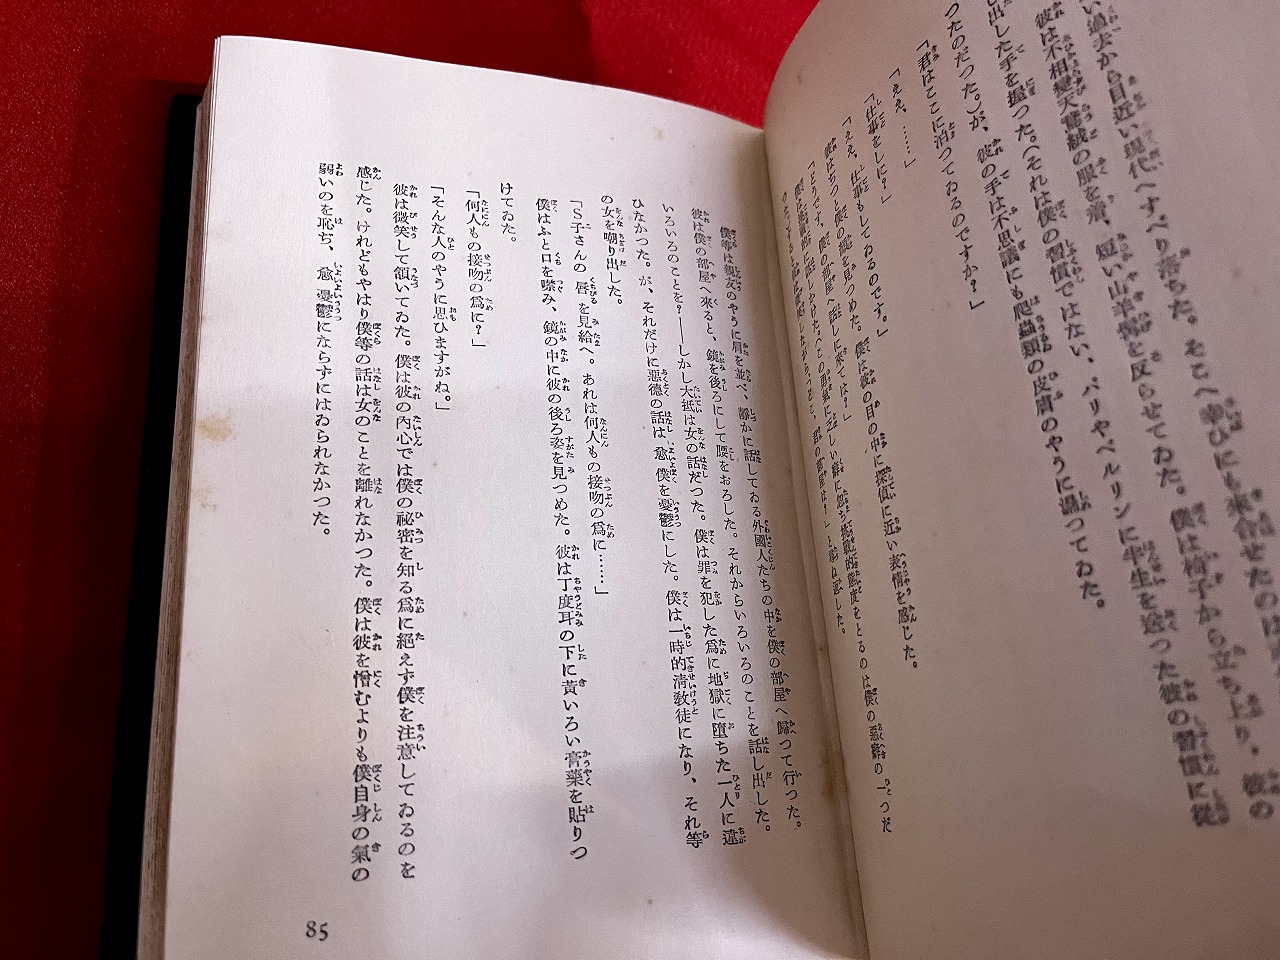 い過去から目近い現代へすべり落ちた。そこへ幸ひにも來合せたのは
彼は不相變天鵞絨の服を着、短い山羊髯を反らせてゐた。僕は椅子から立ち上り、彼の
し出した手を握つた。(それは僕の習慣ではない、パリやベルリンに半生を送つた彼の習慣に從
つたのだつた。)が、彼の手は不思議にも爬蟲類の皮膚のやうに濕つてゐた。
「君はここに泊つてゐるのですか?」
「ええ、……」
「仕事をしに?」
「ええ、仕事もしてゐるのです。」
彼はぢつと僕の顏を見つめた。僕は彼の目の中に探偵に近い表情を感じた。
「どうです、僕の部屋へ話しに來ては?」
僕は挑戰的に話しかけた。(この勇氣に乏しい癖に忽ち挑戰的態度をとるのは僕の惡癖の一つだ
つた。)すると彼は微笑しながら、「どこ、君の部屋は?」と尋ね返した。
僕等は親友のやうに肩を並べ、靜かに話してゐる外國人たちの中を僕の部屋へ歸つて行つた。
彼は僕の部屋へ來ると、鏡を後ろにして腰をおろした。それからいろいろのことを話し出した。
いろいろのことを?――しかし大抵は女の話だつた。僕は罪を犯した爲に地獄に墮ちた一人に違
ひなかつた。が、それだけに惡德の話は愈僕を憂鬱にした。僕は一時的淸敎徒になり、それ等
の女を嘲り出した。
「S子さんの唇を見給へ。あれは何人もの接吻の爲に……」
僕はふと口を噤み、鏡の中に彼の後ろ姿を見つめた。彼は丁度耳の下に黃いろい膏藥を貼りつ
けてゐた。
「何人もの接吻の爲に?」
「そんな人のやうに思ひますがね。」
彼は微笑して頷いてゐた。僕は彼の內心では僕の祕密を知る爲に絕えず僕を注意してゐるのを
感じた。けれどもやはり僕等の話は女のことを離れなかつた。僕は彼を憎むよりも僕自身の氣の
弱いのを恥ぢ、愈憂鬱にならずにはゐられなかつた。
85